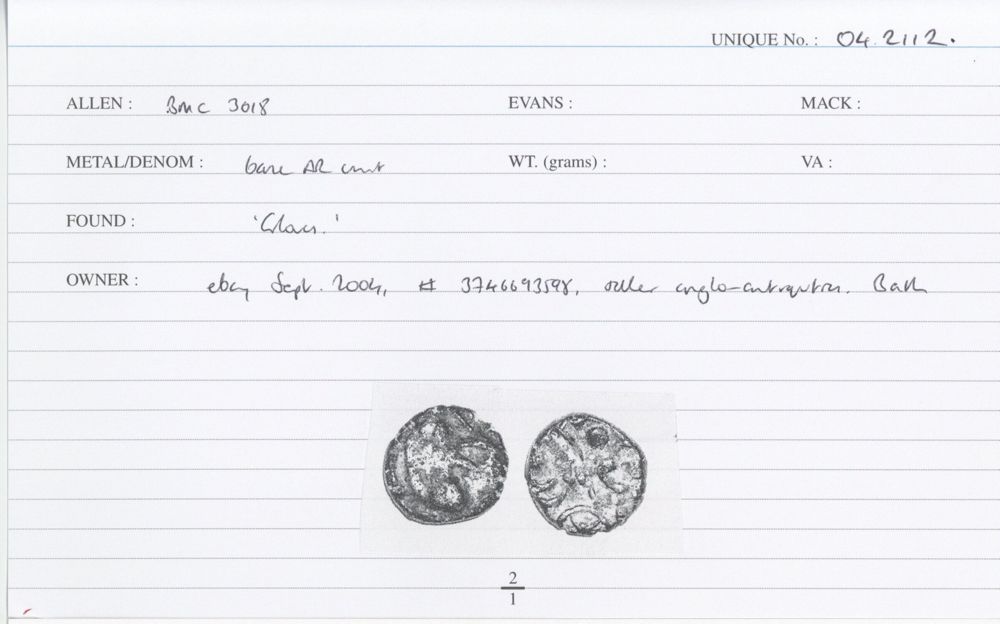 UNIQUE No. : 04.2112.
ALLEN : BMC 3018 EVANS : MACK :
METAL/DENOM : base AR unit WT. (grams) : VA :
FOUND : 'Glos.'
OWNER : ebay Sept. 2004, # 3746693598, seller anglo-antiquities. Bath
2
1